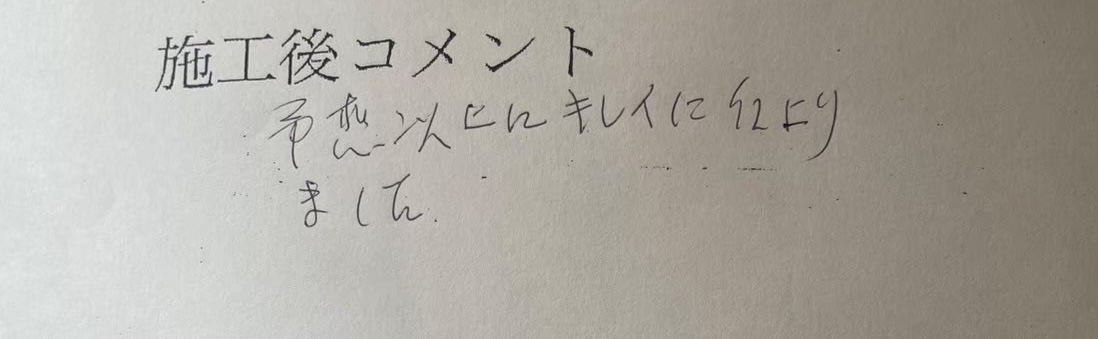 施工後コメント
予想以上にキレイに仕上り
ました